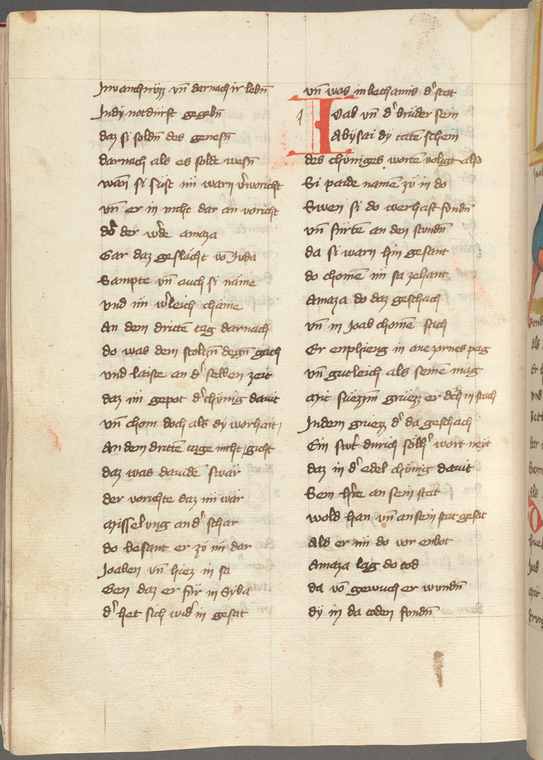 Jnvanchnyss vn̄ darnach ir lebn̄
Jndy notdurft gegebn̄
daz si soldn̄ des genesn̄
darnach als es solde wesn̄
wan si sust im warn vͦworicht
vn̄ er in nicht dar an voricht
do der w̄de amaza
Gar daz geslācht vō Juda
Sampte vn̄ auch si näme
vnd im w͛leich chäme
An dem dritten tag darnach
do was dem stolczn̄ degn̄ gach
vnd laiste an d͛ selben zeit
daz im gepot d͛ chünig dauit
vn̄ chom doch als dy worhait
An dem dritten tage nicht gicht
daz was dauide swär
der vorichte daz im wär
misselung an d͛ schar
do besant er zü im dar
Joaben vn̄ hiez in sa
Gen daz er für in Syba
d͛ het sich wid͛ in gesat
vn̄ was in bechamis d͛ stat
Joab vn̄ d͛ brüder sein
Abysai dy tatē schein
des chüniges worte volgt also
Si paide namē zü in do
Swen si do werhaft fondn̄
vn̄ fürtē an den stundn̄
da si warn hin gesant
do chomē im sa zehant
Amaza do daz geschach
vn̄ in Joab chomē sach
Er enphieng in ane prites pag
vn̄ gutleich als seine mag
mit süezzm̄ gruezz er doch in stach
Jn dem gruezz d͛ da geschach
Ein sw͛t durich sölh͛ wort neyt
daz in d͛ edel chünig dauit
Sein h͛re an sein stat
wold han vn̄ an sein stat gesat
als er im do vor enbot
Amaza lag do tod
da vō gewuch er wundn̄
dy in da toden fondn̄